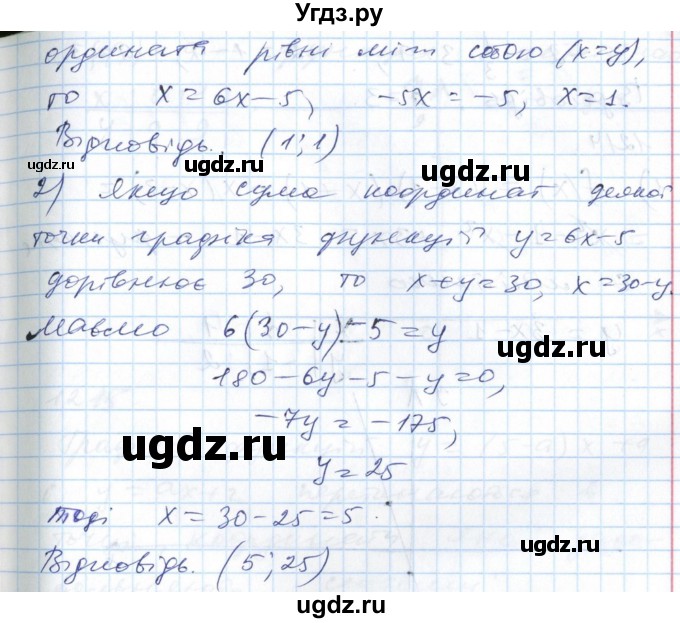 Угдз.ру
ордината рівні між собою (x=y),
то x = 6x-5, -5x = -5, x=1.
Відповідь. (1;1)
ugdz.ru ugdz.ru
2) Якщо сума координат деякої
точки графіка функції y=6x-5
дорівнює 30, то x+y=30, x=30-y.
ugdz.ru
Маємо 6(30-y)-5=y
180-6y-5-y=0,
ugdz.ru ugdz.ru
-7y = -175,
y=25
Тоді x = 30-25=5.
ugdz.ru ugdz.ru
Відповідь. (5;25)
ugdz.ru